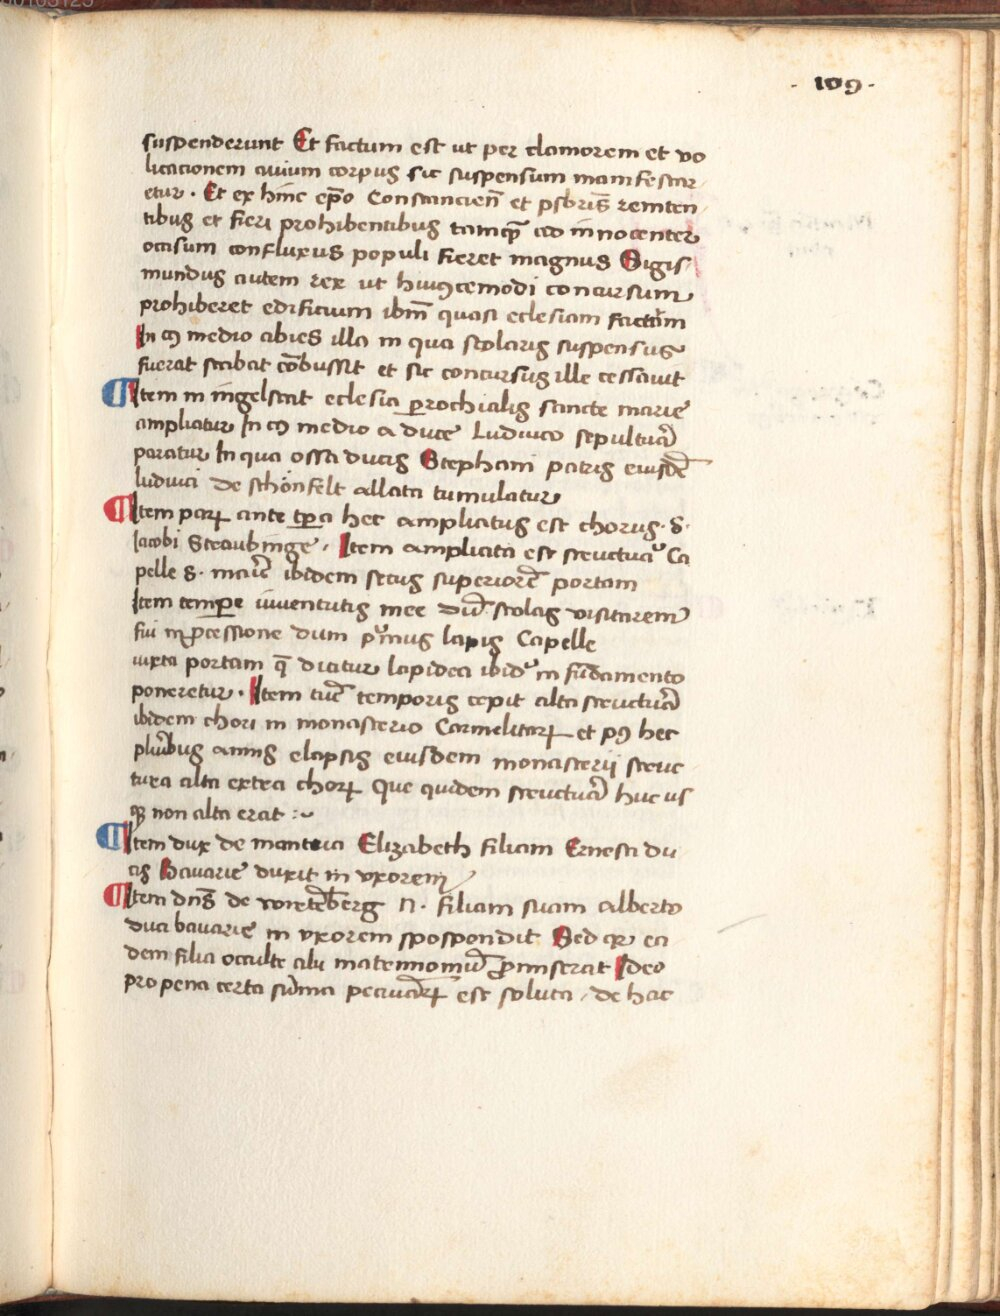 · 109 ·
suspenderunt Et factum est ut per clamorem et vo
licacionem auium corpus sic suspensum manifestar
etur · Et ex hinc ep̄o Constancien̄ et pſbris̄ remten
tibus et fieri prohibentibus tamq̄ ad innocenter
occisum confluxus populi fieret magnus Sigis
mundus autem rex ut huiꝰcemodi concursum
prohiberet edificium ibm̄ quasi eclesiam factam
In cꝰ medio abies illa in qua scolaris suspensus
fuerat stabat cōbussit et sic concursus ille cessauit
Item in ingelstat eclesia ꝑrochialis sancte marie
ampliatur In cꝰ medio a duce Luduico sepultur̄a
paratur In qua ossa ducis Stephani patris eiusdē
luduici de schönfelt allata tumulatur
Item parꝝ ante tp̄a hec ampliatus est chorus · S ·
Jacobi Straubinge · Item ampliata est structura Ca
pelle S · marīe ibidem secus superiorē portam
Item tempore iuuentutis mee dū scolas visitarem
fui in ꝓcessione dum pͥmus lapis Capelle
iuxta portam q̄ dicitur lapidea ibidē in fūdamento
poneretur · Item tūc temporis cepit alta structura
ibidem chori in monasterio Carmelitarꝝ et pꝰ hec
pluribus annis elapsis eiusdem monasterij struc
tura alta extra chorꝝ Que quidem structura huc us
qꝫ non alta erat :~
Item dux de mantua Elizabeth filiam Ernesti du
cis Bauarie duxit in vxorem
Item dn̄s de wirtēberg N · filiam suam alberto
duci bauarie in vxorem spospondit Sed qꝛ ea
dem filia occulte alij matrimoniū ꝓmiserat Ideo
pro pena certa sūma pecuniarꝝ est soluta / de hac